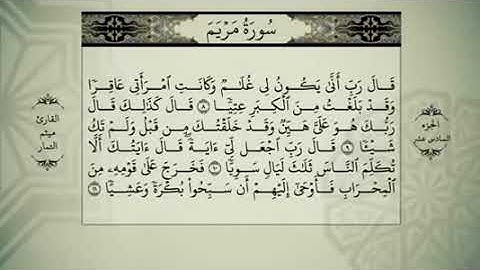 سُورَةُ مَرْيَمَ
قَالَ رَبِّ أَنَّىٰ يَكُونُ لِى غُلَٰمٌ وَكَانَتِ ٱمْرَأَتِى عَاقِرًا
وَقَدْ بَلَغْتُ مِنَ ٱلْكِبَرِ عِتِيًّا ٨ قَالَ كَذَٰلِكَ قَالَ
رَبُّكَ هُوَ عَلَىَّ هَيِّنٌ وَقَدْ خَلَقْتُكَ مِن قَبْلُ وَلَمْ تَكُ
شَيْـًٔا ٩ قَالَ رَبِّ ٱجْعَل لِّىٓ ءَايَةً قَالَ ءَايَتُكَ أَلَّا
تُكَلِّمَ ٱلنَّاسَ ثَلَٰثَ لَيَالٍ سَوِيًّا ١٠ فَخَرَجَ عَلَىٰ قَوْمِهِۦ مِنَ
ٱلْمِحْرَابِ فَأَوْحَىٰٓ إِلَيْهِمْ أَن سَبِّحُوا۟ بُكْرَةً وَعَشِيًّا ١١
الجزء
السادس عشر
القارئ
ميثم
التمار